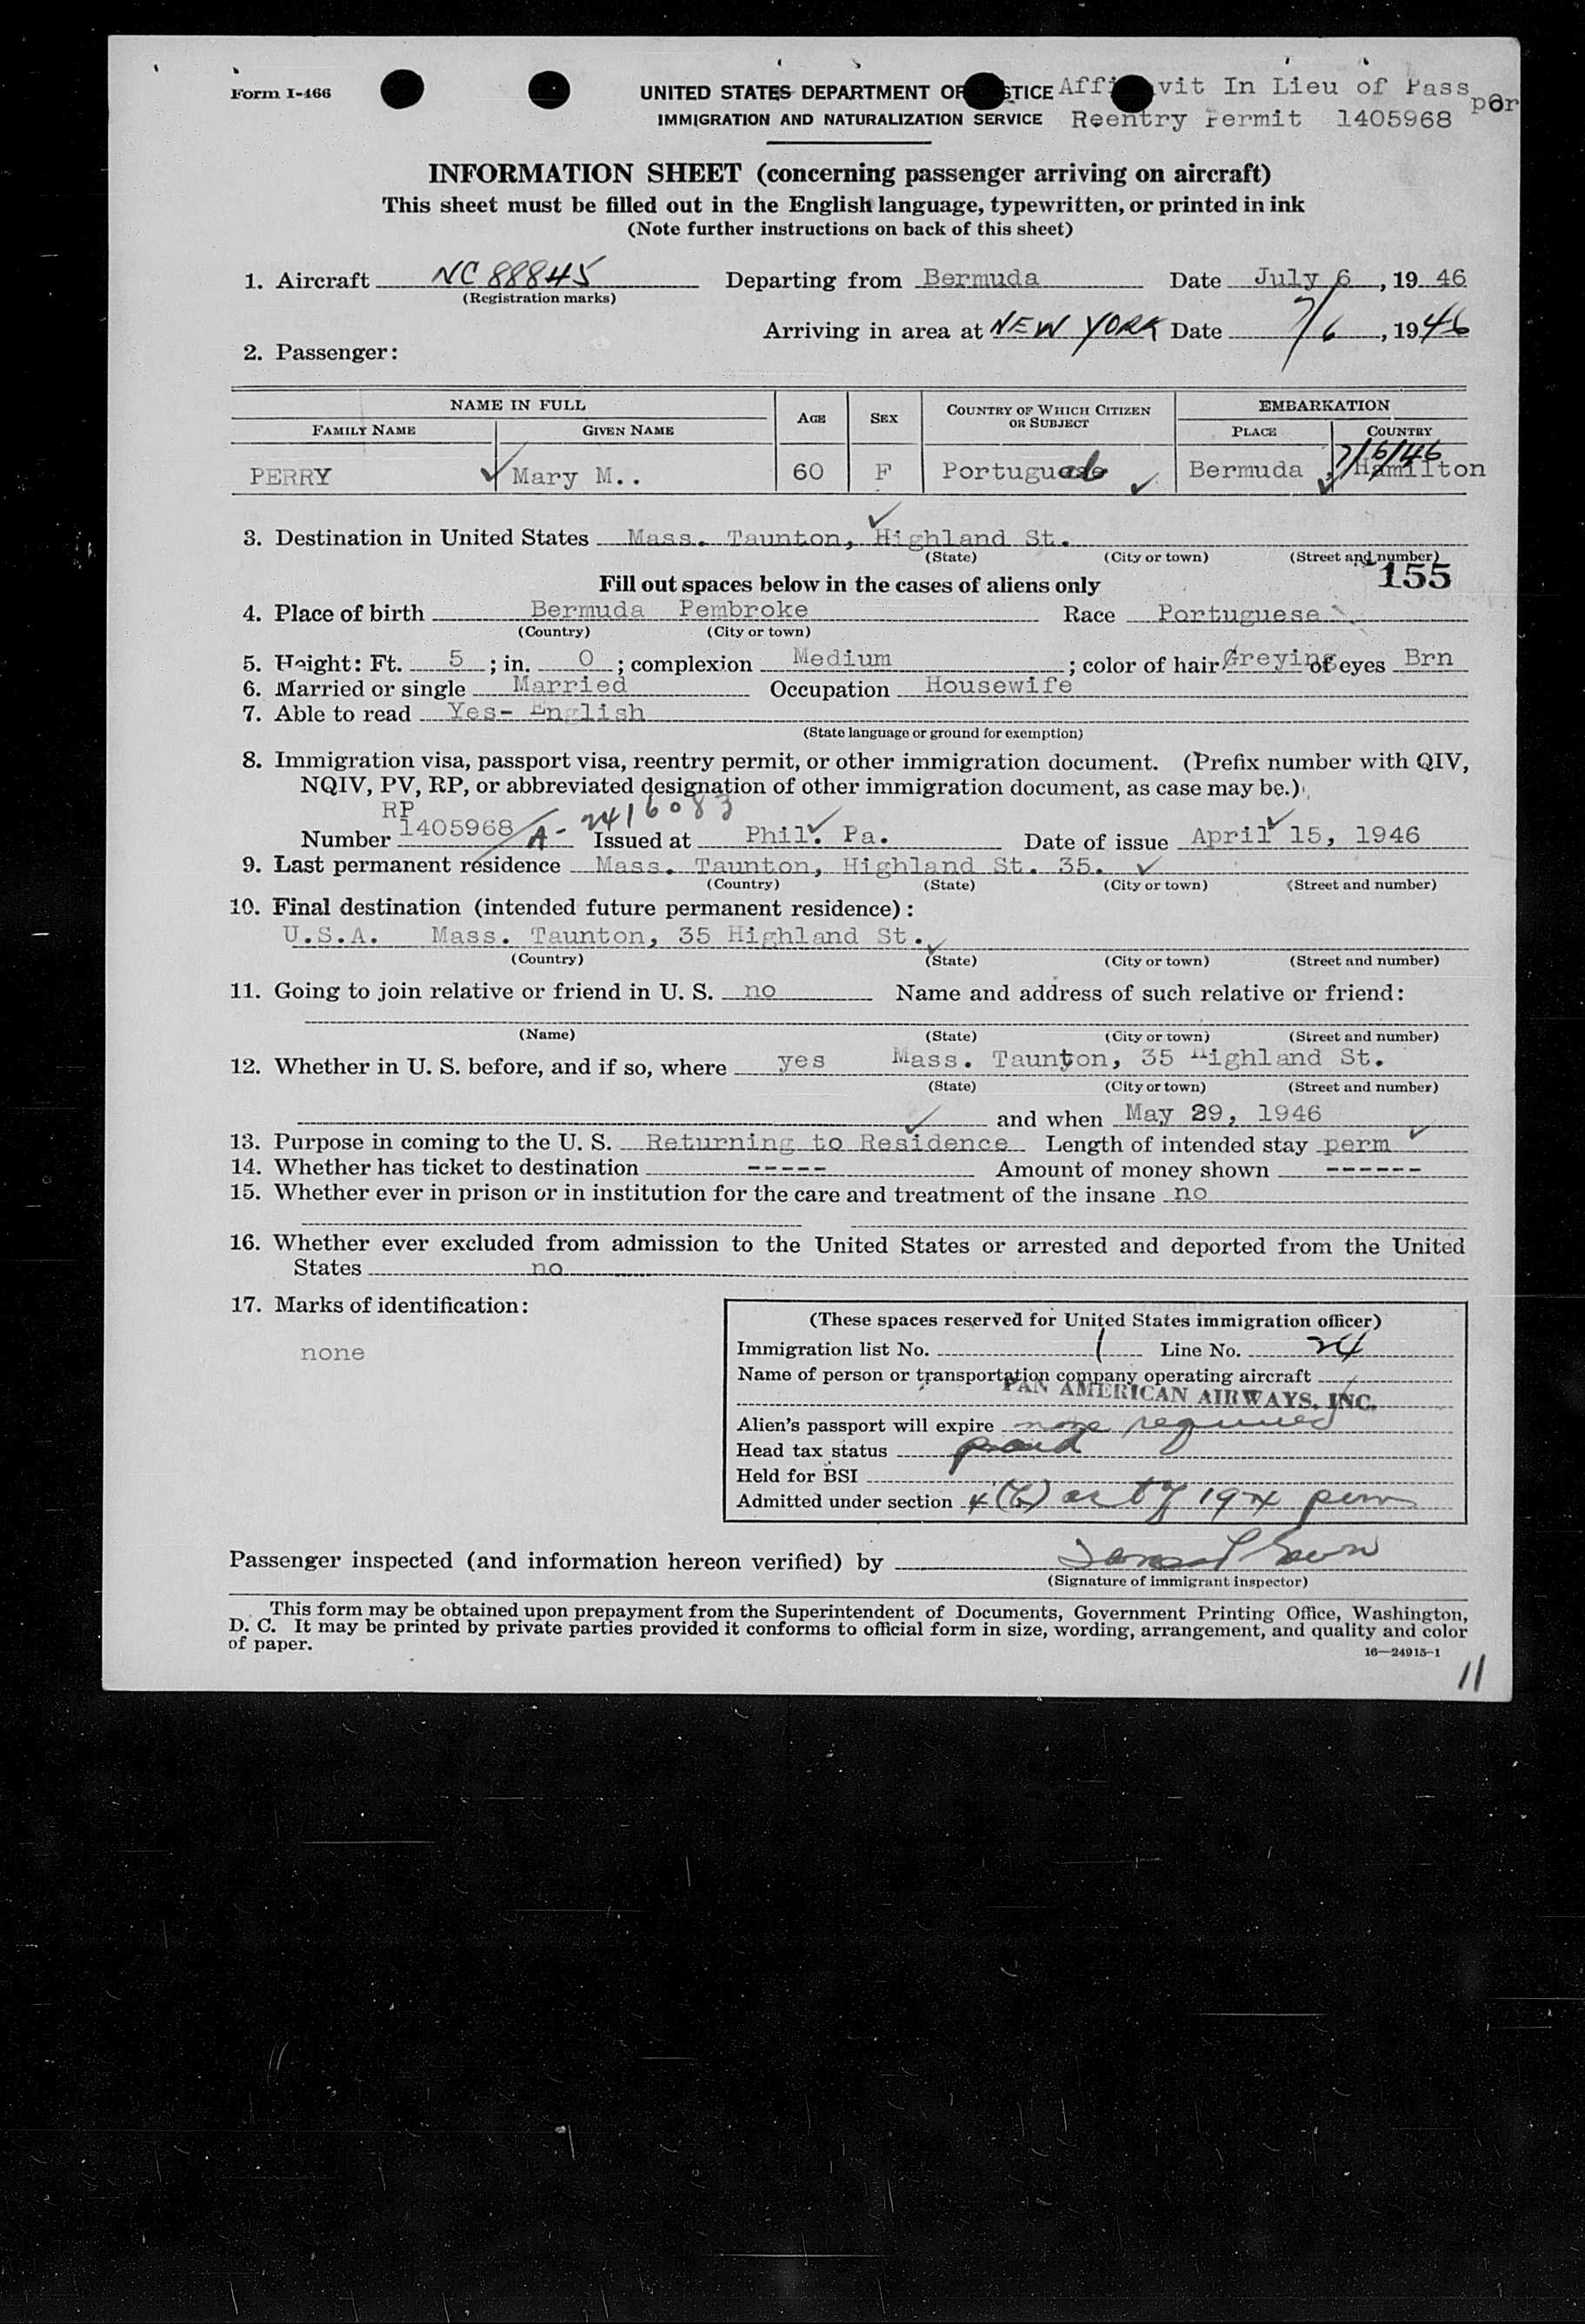 Form I-466
UNITED STATES DEPARTMENT OF STICE Aff vit In Lieu of Pass por
IMMIGRATION AND NATURALIZATION SERVICE Reentry Permit 1405968
INFORMATION SHEET (concerning passenger arriving on aircraft)
This sheet must be filled out in the English language, typewritten, or printed in ink
(Note further instructions on back of this sheet)
1. Aircraft NC 88845 Departing from Bermuda Date July 6, 19 46
(Registration marks)
Arriving in area at NEW YORK Date 7/6, 19 46
2. Passenger:
NAME IN FULL AGE SEX COUNTRY OF WHICH CITIZEN OR SUBJECT EMBARKATION
FAMILY NAME GIVEN NAME PLACE COUNTRY
7/6/46
PERRY Mary M.. 60 F Bermuda Hamilton
3. Destination in United States Mass. Taunton, Highland St.
(State) (City or town) (Street and number)
155
Fill out spaces below in the cases of aliens only
4. Place of birth Bermuda Pembroke Race Portuguese
(Country) (City or town)
5. Height: Ft. 5 ; in. 0 ; complexion Medium ; color of hair Greying of eyes Brn
6. Married or single Married Occupation Housewife
7. Able to read Yes- English
(State language or ground for exemption)
8. Immigration visa, passport visa, reentry permit, or other immigration document. (Prefix number with QIV,
NQIV, PV, RP, or abbreviated designation of other immigration document, as case may be.)
RP
Number 1405968/A-2416083 Issued at Phil. Pa. Date of issue April 15, 1946
9. Last permanent residence Mass. Taunton, Highland St. 35.
(Country) (State) (City or town) (Street and number)
10. Final destination (intended future permanent residence):
U.S.A. Mass. Taunton, 35 Highland St.
(Country) (State) (City or town) (Street and number)
11. Going to join relative or friend in U. S. no Name and address of such relative or friend:
(Name) (State) (City or town) (Street and number)
12. Whether in U. S. before, and if so, where yes Mass. Taunton, 35 Highland St.
(State) (City or town) (Street and number)
and when May 29, 1946
13. Purpose in coming to the U. S. Returning to Residence Length of intended stay perm
14. Whether has ticket to destination ----- Amount of money shown ------
15. Whether ever in prison or in institution for the care and treatment of the insane no
16. Whether ever excluded from admission to the United States or arrested and deported from the United
States no
17. Marks of identification:
none
(These spaces reserved for United States immigration officer)
Immigration list No. 1 Line No. 24
Name of person or transportation company operating aircraft
PAN AMERICAN AIRWAYS, INC.
Alien's passport will expire none required
Head tax status paid
Held for BSI
Admitted under section 4(b) act of 1924 perm
Passenger inspected (and information hereon verified) by
(Signature of immigrant inspector)
This form may be obtained upon prepayment from the Superintendent of Documents, Government Printing Office, Washington,
D. C. It may be printed by private parties provided it conforms to official form in size, wording, arrangement, and quality and color
of paper.
16—24915-1
11